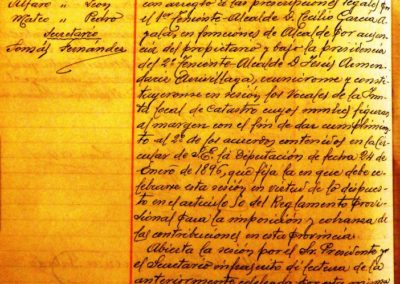 Alfaro " León
Mateo " Pedro
Secretario
Tomás Fernández
con arreglo a las prescripciones legales por
el 1er Teniente Alcalde D. Cecilio Garcia A
en funciones de Alcalde por ausen
cia del propietario y bajo la presidencia
del 2º Teniente Alcalde D. Jesús Armen
dariz reunieronse y consti
tuyeronse en sesión, los Vocales de la Jun
ta local de Catastro cuyos nombres figuran
al margen con el fin de dar cumplimien
to al 2º de los acuerdos contenidos en la cir
cular de S.E. la Diputación de fecha 24 de
Enero de 1896, que fija la en que debe ce
lebrarse esta sesión en virtud de lo dispues
to en el artículo 50 del Reglamento provi
sional para la imposición y cobranza de
las contribuciones en esta provincia
Abierta la sesión por el Sr. Presidente yo
el Secretario infrascrito di lectura de la
anteriormente celebrada por esta misma